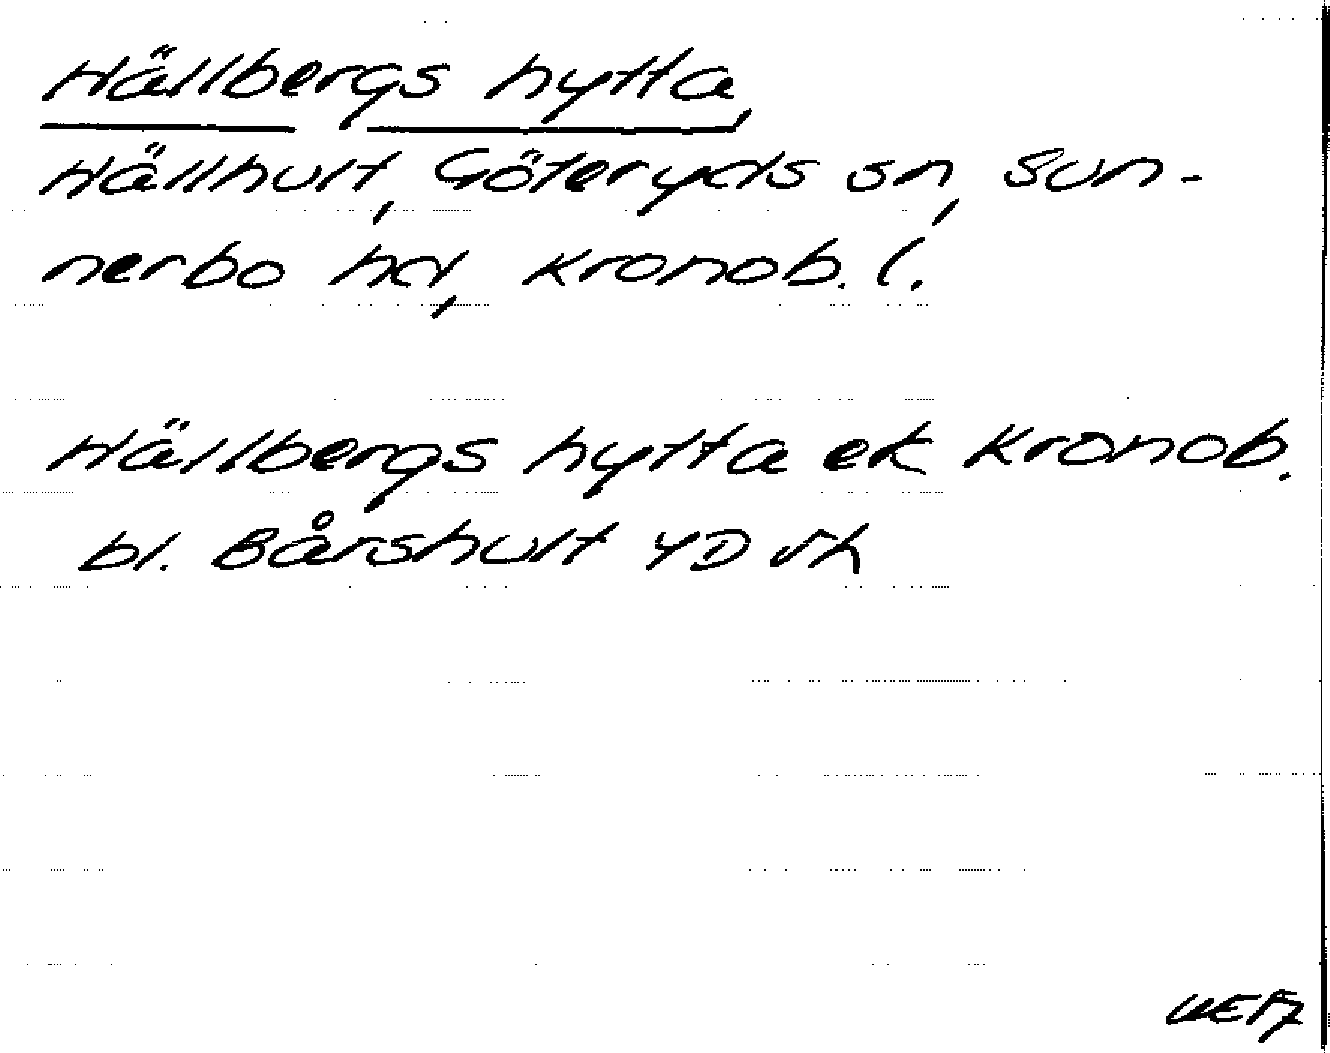 Hällbergs hytta,
Hällhult, Göteryds sn, Sun-
nerbo hd, Kronob. l.
Hällbergs hytta ek Kronob.
bl. Bårshult 4D